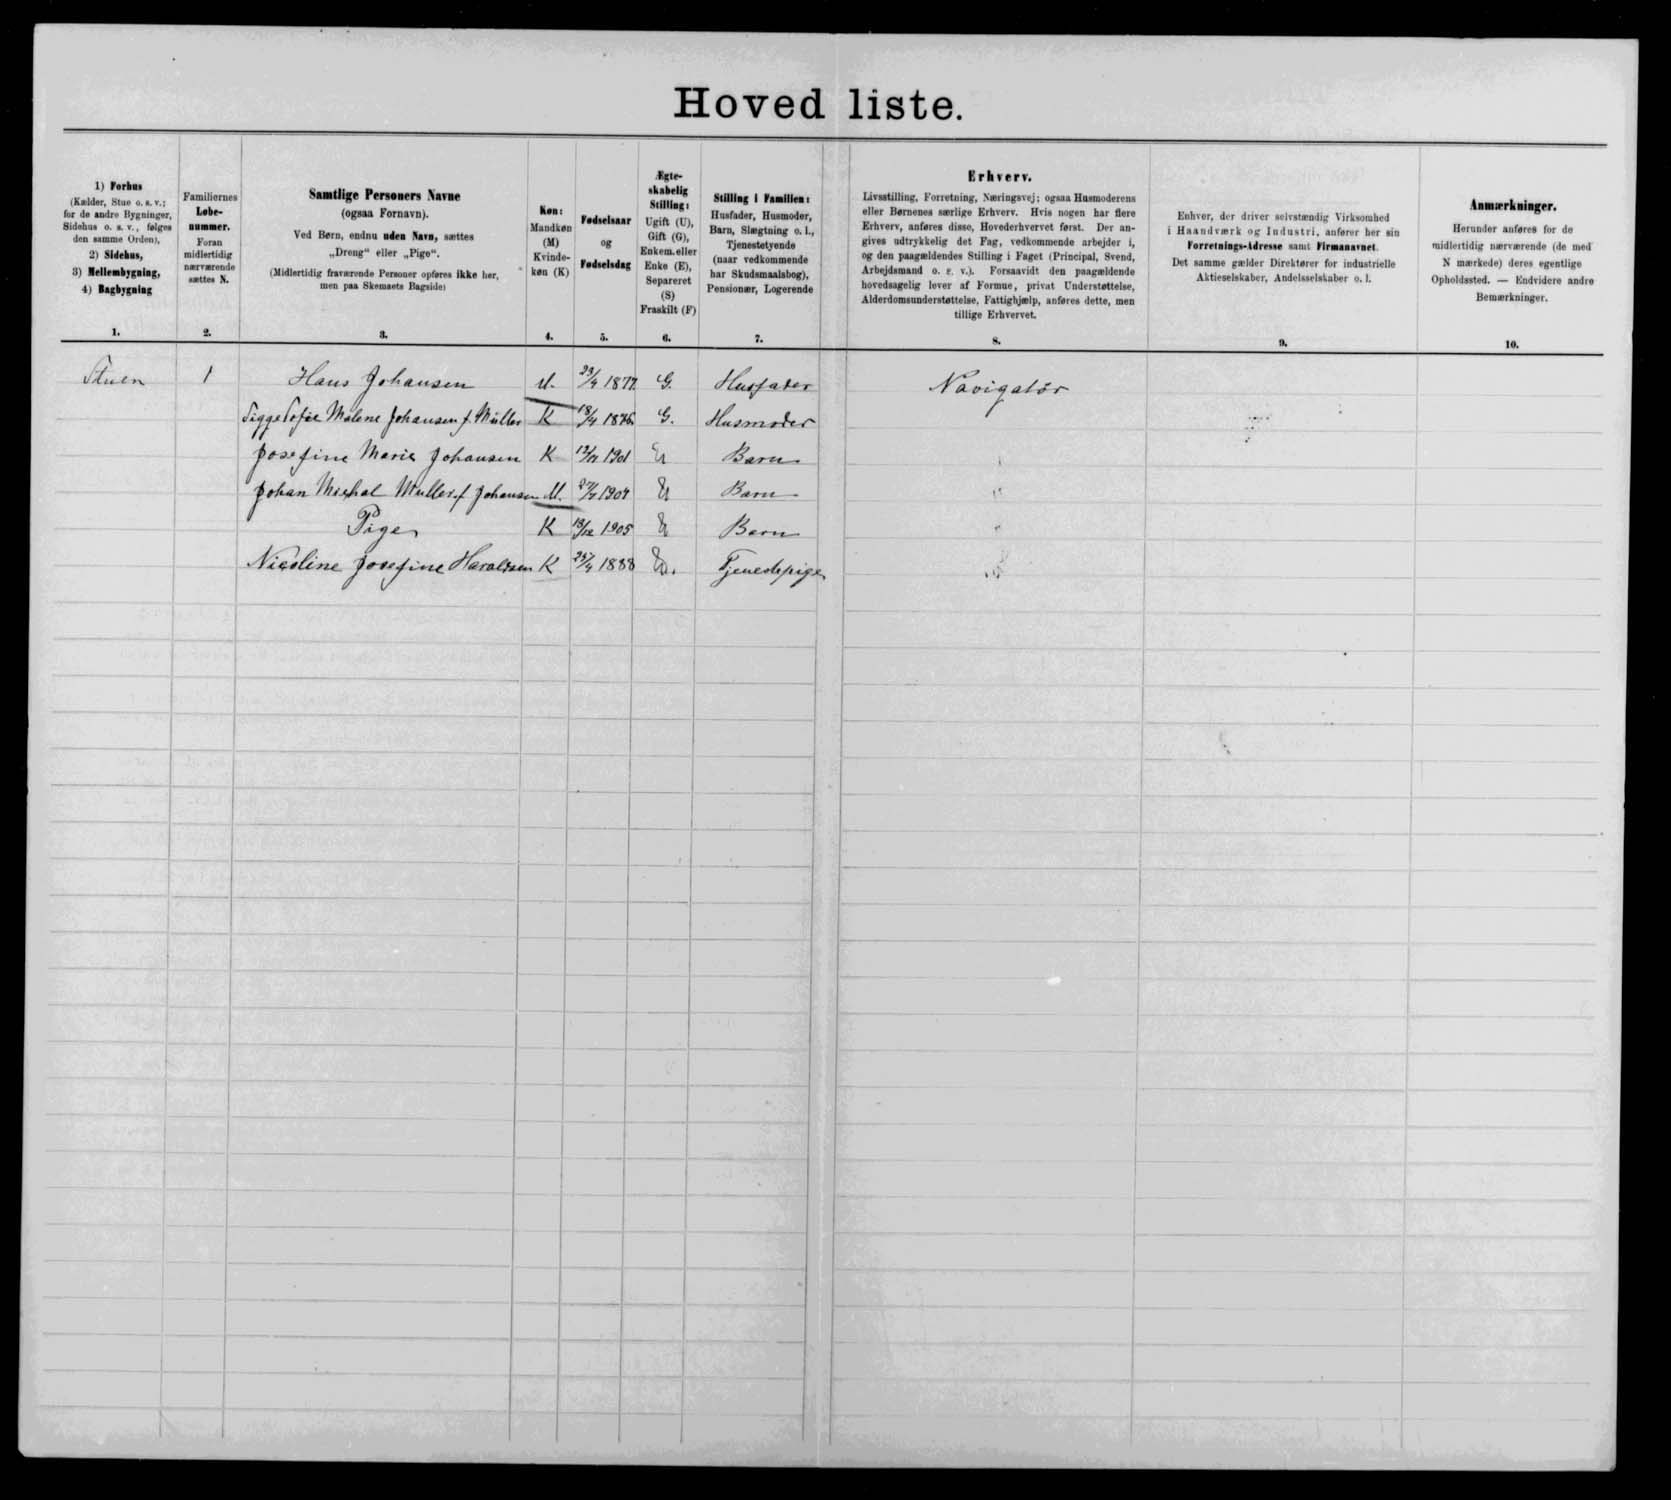 Hovedliste.
1) Forhus
(Kælder, Stue o. s. v.;
for de andre Bygninger,
Sidehus o. s. v., følges
den samme Orden),
2) Sidehus,
3) Mellembygning,
4) Bagbygning
1.
Familiernes
Løbe-
nummer.
Foran
midlertidig
nærværende
sættes N.
2.
Samtlige Personers Navne
(ogsaa Fornavn).
Ved Børn, endnu uden Navn, sættes
„Dreng“ eller „Pige“.
(Midlertidig fraværende Personer opføres ikke her,
men paa Skemaets Bagside)
3.
Køn:
Mandkøn
(M)
Kvinde-
køn (K)
4.
Fødselsaar
og
Fødselsdag
5.
Ægte-
skabelig
Stilling:
Ugift (U),
Gift (G),
Enkem. eller
Enke (E),
Separeret
(S)
Fraskilt (F)
6.
Stilling i Familien:
Husfader, Husmoder,
Barn, Slægtning o. l.,
Tjenestetyende
(naar vedkommende
har Skudsmaalsbog),
Pensionær, Logerende
7.
Erhverv.
Livsstilling, Forretning, Næringsvej; ogsaa Husmoderens
eller Børnenes særlige Erhverv. Hvis nogen har flere
Erhverv, anføres disse, Hovederhvervet først. Der an-
gives udtrykkelig det Fag, vedkommende arbejder i,
og den paagældendes Stilling i Faget (Principal, Svend,
Arbejdsmand o. s. v.). Forsaavidt den paagældende
hovedsagelig lever af Formue, privat Understøttelse,
Alderdomsunderstøttelse, Fattighjælp, anføres dette, men
tillige Erhvervet.
8.
Enhver, der driver selvstændig Virksomhed
i Haandværk og Industri, anfører her sin
Forretnings-Adresse samt Firmanavnet.
Det samme gælder Direktører for industrielle
Aktieselskaber, Andelsselskaber o. l.
9.
Anmærkninger.
Herunder anføres for de
midlertidig nærværende (de med
N mærkede) deres egentlige
Opholdssted. — Endvidere andre
Bemærkninger.
10.
Stuen 1 Hans Johansen M. 23/4 1877. G. Husfader Navigatør
Sofie Malene Johansen f. Müller K 18/4 1876. G. Husmoder
Josefine Marie Johansen K 1901 U Barn
Johan Michal Müller f Johansen M. 1904 U Barn
Pige K 13/12 1905 U Barn
Nicoline Josefine Haraldsen K 25/4 1888 U. Tjenestepige